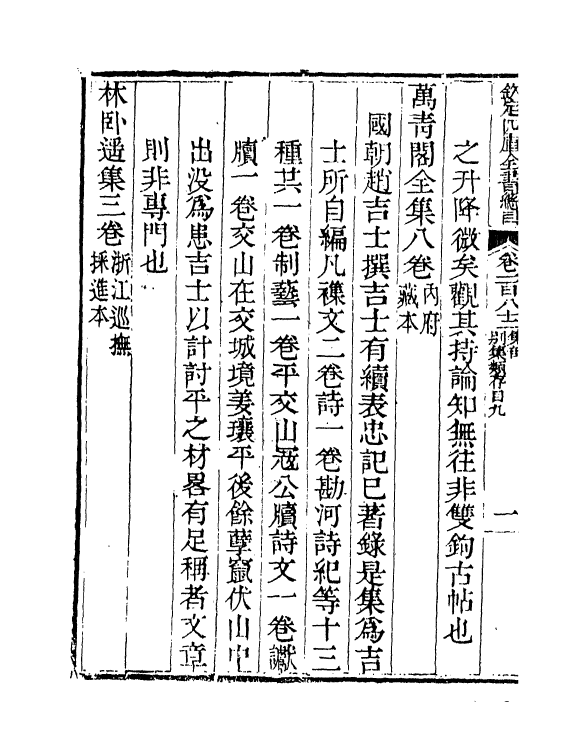 欽定四庫全書總目 卷一百八十二 集部 別集類存目九 一
之升降微矣觀其持論知無往非雙鉤古帖也
萬青閣全集八卷 內府藏本
國朝趙吉士撰吉士有續表忠記已著錄是集爲吉
士所自編凡襍文二卷詩一卷勘河詩紀等十三
種共一卷制藝一卷平交山寇公牘詩文一卷讞
牘一卷交山在交城境姜瓖平後餘孽竄伏山中
出没爲患吉士以計討平之材畧有足稱者文章
則非專門也
林卧遥集三卷 浙江巡撫採進本